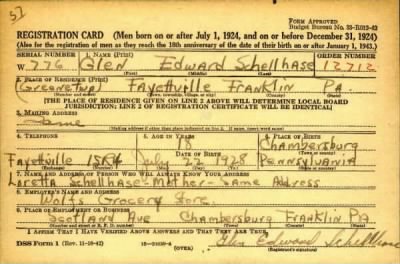 52
Form Approved
Budget Bureau No. 33-R012-42
REGISTRATION CARD (Men born on or after July 1, 1924, and on or before December 31, 1924)
(Also for the registration of men as they reach the 18th anniversary of the date of their birth on or after January 1, 1943.)
SERIAL NUMBER 1. NAME (Print) ORDER NUMBER
W. 776 Glen Edward Schellhase 12712
(First) (Middle) (Last)
2. PLACE OF RESIDENCE (Print)
(Greene Twp) Fayettville Franklin Pa.
(Number and street) (Town, township, village, or city) (County) (State)
[THE PLACE OF RESIDENCE GIVEN ON LINE 2 ABOVE WILL DETERMINE LOCAL BOARD
JURISDICTION; LINE 2 OF REGISTRATION CERTIFICATE WILL BE IDENTICAL]
3. MAILING ADDRESS
Same
[Mailing address if other than place indicated on line 2. If same, insert word same]
4. TELEPHONE 5. AGE IN YEARS 6. PLACE OF BIRTH
18 Chambersburg
DATE OF BIRTH
Fayettville 15R4 July 22 1928 Pennsylvania
7. NAME AND ADDRESS OF PERSON WHO WILL ALWAYS KNOW YOUR ADDRESS
Loretta Schellhase-Mother-Same Address
8. EMPLOYER'S NAME AND ADDRESS
Wolfs Grocery Store
9. PLACE OF EMPLOYMENT OR BUSINESS
Scotland Ave Chambersburg Franklin Pa
(Number and street or R. F. D. number) (Town) (County) (State)
I AFFIRM THAT I HAVE VERIFIED ABOVE ANSWERS AND THAT THEY ARE TRUE.
DSS Form 1 (Rev. 11-16-42) (OVER) Glen Edward Schellhase